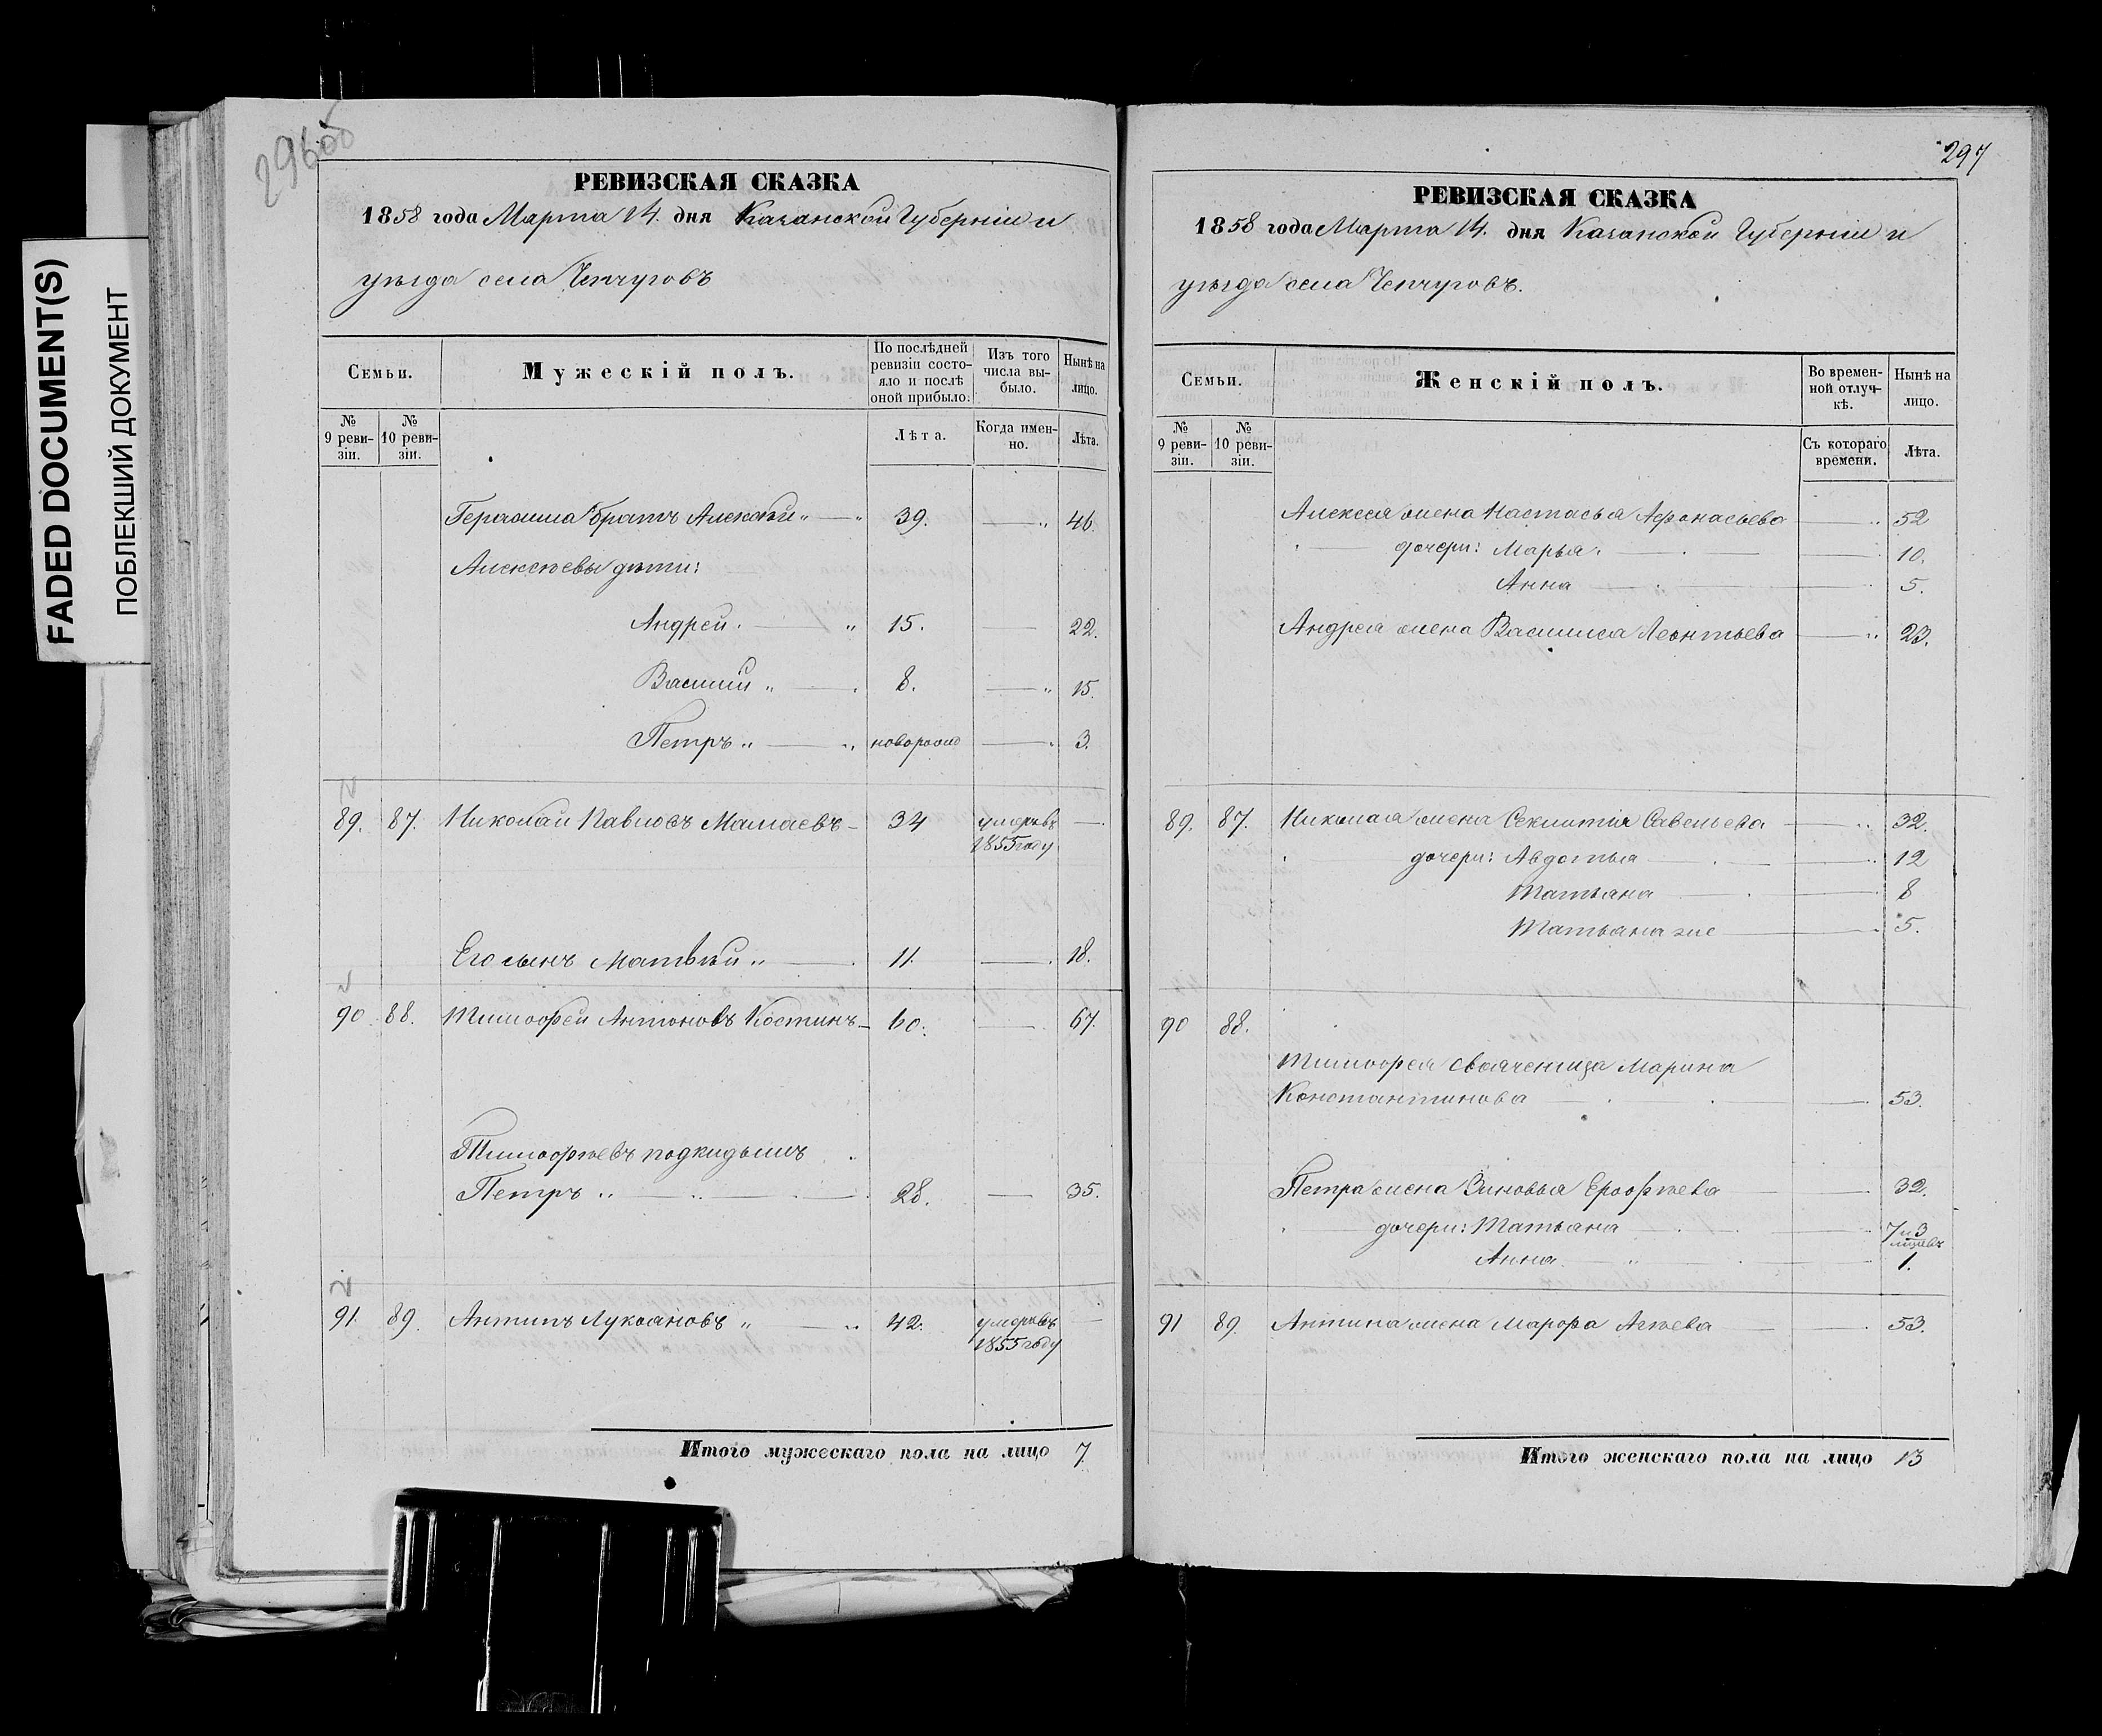 FADED DOCUMENT(S)
ПОБЛЕКШИЙ ДОКУМЕНТ
296об
РЕВИЗСКАЯ СКАЗКА
1858 года Марта 14. дня Казанской Губерніи и
уѣзда села Чепчуговъ
Семьи.
Мужескій полъ.
По послѣдней ревизіи состояло и послѣ оной прибыло.
Изъ того числа выбыло.
Нынѣ на лицо.
№ 9 ревизіи.
№ 10 ревизіи.
Лѣта.
Когда именно.
Лѣта.
Герасима братъ Алексѣй 39. 46.
Алексѣевы дѣти:
Андрей. 15. 22.
Василий 8. 15.
Петръ новорожд 3.
89. 87. Николай Павловъ Мамаевъ 34 умеръ въ 1855 году
Его сынъ Матвѣй 11. 18.
90 88. Тимофей Антоновъ Костинъ 60. 67.
Тимофѣевъ подкидышъ
Петръ 28. 35.
91. 89. Антипъ Лукояновъ 42. умеръ въ 1855 году
Итого мужескаго пола на лицо 7.
297
РЕВИЗСКАЯ СКАЗКА
1858 года Марта 14. дня Казанской Губерніи и
уѣзда села Чепчуговъ.
Семьи.
Женскій полъ.
Во временной отлучкѣ.
Нынѣ на лицо.
№ 9 ревизіи.
№ 10 ревизіи.
Съ котораго времени.
Лѣта.
Алексея жена Настасья Афонасьева 52
дочери: Марья. 10.
Анна 5.
Андрея жена Василиса Леонтьева 23.
89. 87. Николая жена Савельева 32.
дочери: Авдотья 12
Татьяна 8
Татьяна же 5.
90 88.
Тимофея свояченица Марина
Константинова 53.
Петра жена Зиновья Ерофѣева 32.
дочери: Татьяна 7 и 3
Анна 1.
91 89. Антипа жена Марфа 53.
Итого женскаго пола на лицо 13